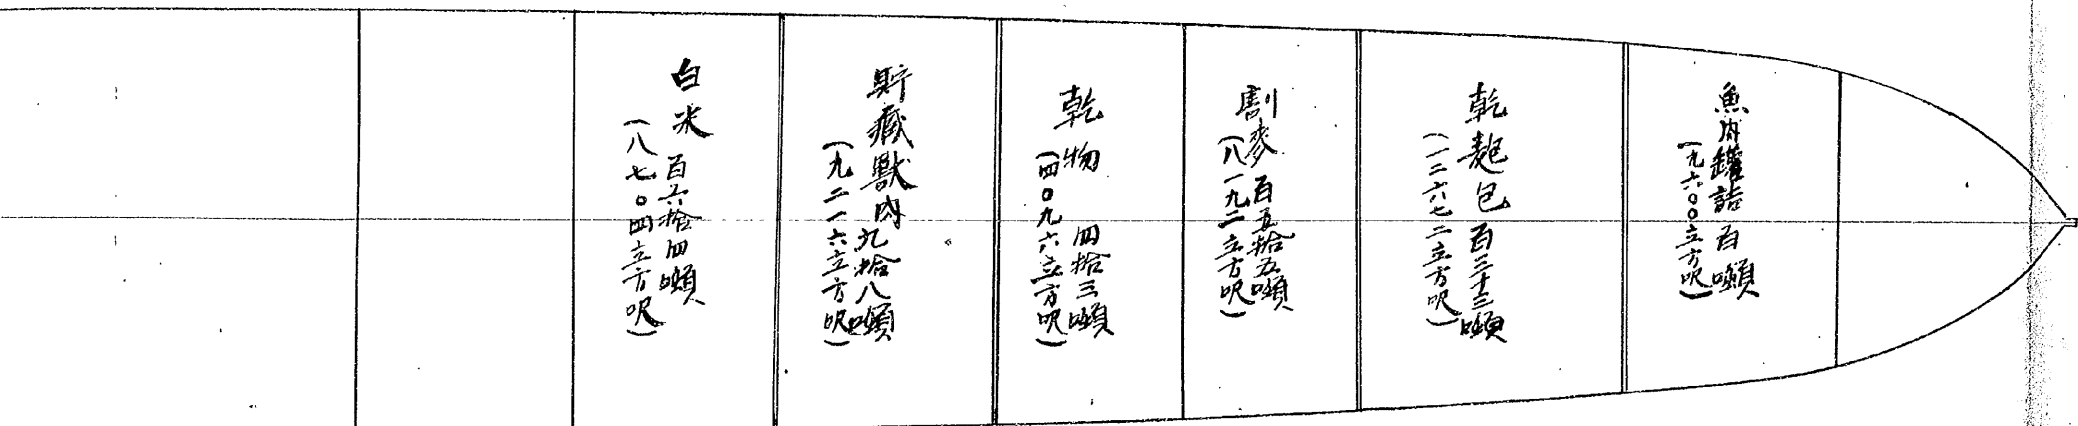 魚肉罐詰 百噸
(九六〇〇立方呎)
乾麭包 百三十三噸
(一二六七二立方呎)
割麥 百五拾五噸
(八一九二立方呎)
乾物 四拾三噸
(四〇九六立方呎)
貯蔵獸肉 九拾八噸
(九二一六立方呎)
白米 百六拾四噸
(八七〇四立方呎)